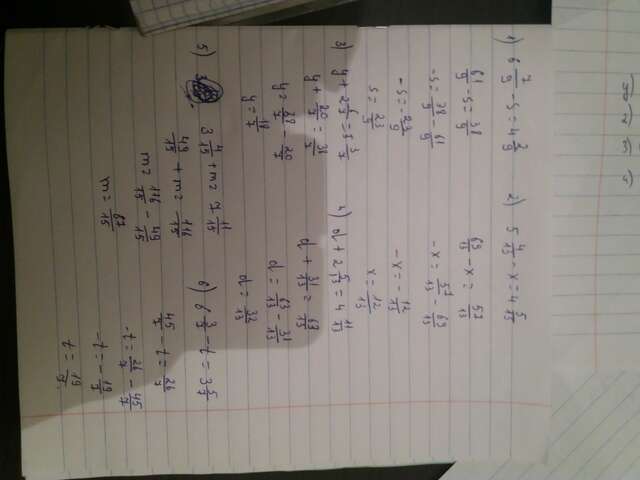 1) 6 7/9 - s = 4 2/9
61/9 - s = 38/9
-s = 38/9 - 61/9
-s = - 23/9
s = 23/9
2) 5 4/13 - x = 4 5/13
69/13 - x = 57/13
-x = 57/13 - 69/13
-x = - 12/13
x = 12/13
3) y + 2 6/7 = 5 3/7
y + 20/7 = 38/7
y = 38/7 - 20/7
y = 18/7
4) d + 2 5/13 = 4 11/13
d + 31/13 = 63/13
d = 63/13 - 31/13
d = 32/13
5) 3 4/15 + m = 7 11/15
49/15 + m = 116/15
m = 116/15 - 49/15
m = 67/15
6) 6 3/7 - t = 3 5/7
45/7 - t = 26/7
-t = 26/7 - 45/7
-t = - 19/7
t = 19/7